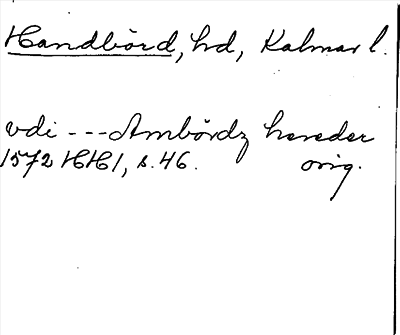 Handbörd, hd, Kalmar l.
vdi --- Ambördz hereder
1572 HH1, s. 46. orig.